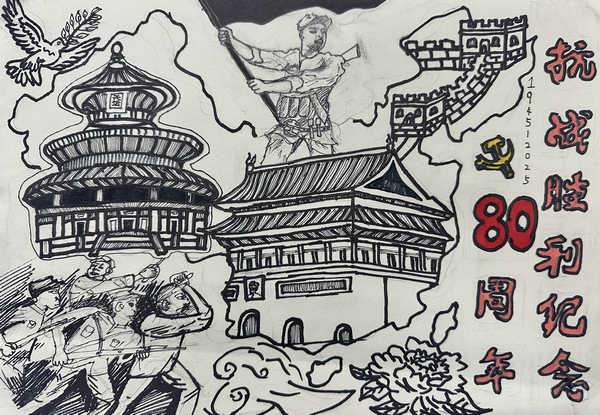 抗战胜利纪念
1945-2025
80周年